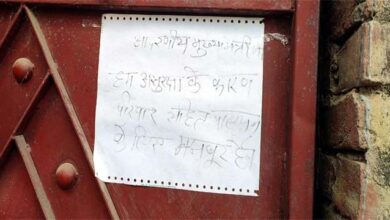 माननीय मुख्यमंत्री जी
हम असुरक्षा के कारण
परिवार सहित पलायन
के लिए मजबूर है।